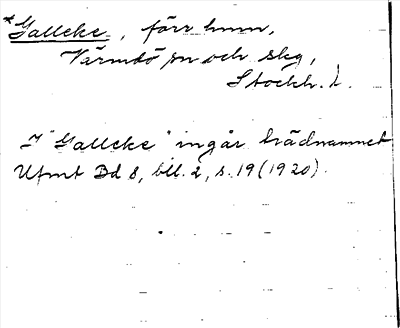 *Gallcke, förr hmn,
Värmdö sn och skg,
Stockh. l.
I "Gallcke" ingår trädnamnet
Utmt Bd 8, bil. 2, s. 19 (1920).